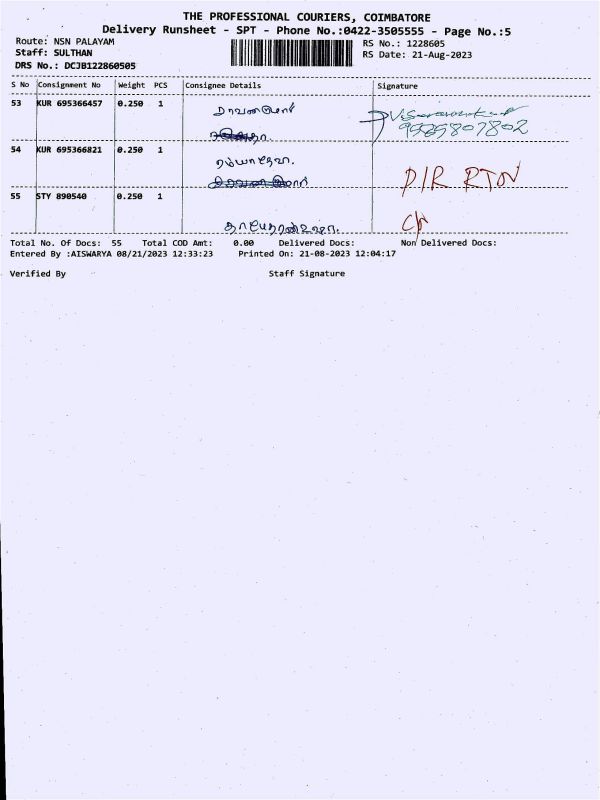 THE PROFESSIONAL COURIERS, COIMBATORE
Delivery Runsheet - SPT - Phone No.:0422-3505555 - Page No.:5
Route: NSN PALAYAM
Staff: SULTHAN
DRS No.: DCJB122860505
RS No.: 1228605
RS Date: 21-Aug-2023
S No Consignment No Weight PCS Consignee Details Signature
53 KUR 695366457 0.250 1
54 KUR 695366821 0.250 1
D/R RTN
55 STY 890540 0.250 1
Total No. Of Docs: 55 Total COD Amt: 0.00 Delivered Docs: Non Delivered Docs:
Entered By :AISWARYA 08/21/2023 12:33:23 Printed On: 21-08-2023 12:04:17
Verified By Staff Signature